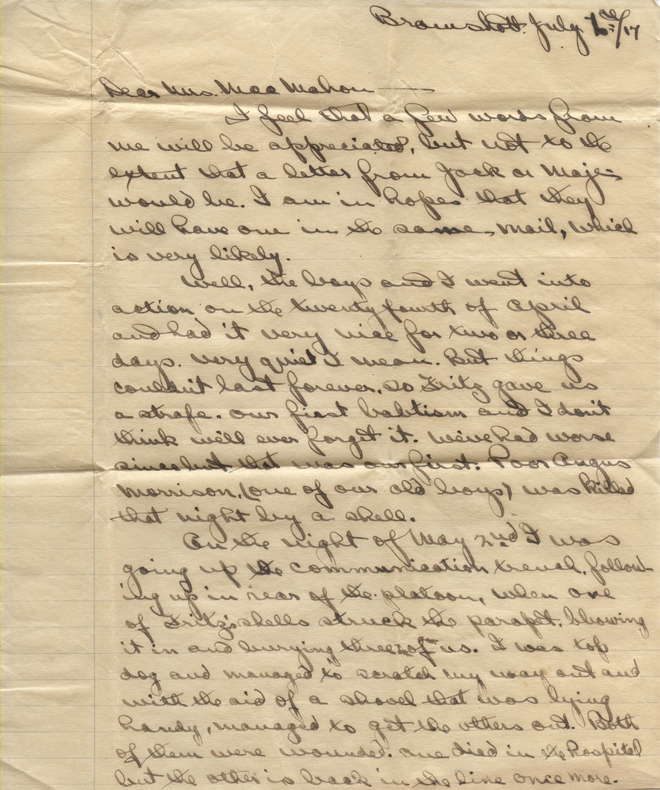 Bramshott July /17
Dear Mrs. MacMahon
I feel that a few words from
me will be appreciated, but not to the
extent that a letter from Jack or
would be. I am in hopes that they
will have one in the same mail, which
is very likely.
Well, the boys and I went into
action on the twenty fourth of April
and had it very nice for two or three
days. very quiet I mean. But things
couldn't last forever, so Fritz gave us
a strafe. our first babtism and I don't
think we'll ever forget it. We've had worse
since but that was our first. Poor Angus
Morrison, (one of our old boys) was killed
that night by a shell.
On the night of May 2nd I was
going up the communication trench, follow-
ing up in rear of the platoon, when one
of Fritz's shells struck the parapet. blowing
it in and burying three of us. I was top
dog and managed to scratch my way out and
with the aid of a shovel that was lying
handy, managed to get the others out. Both
of them were wounded. one died in the hospital
but the other is back in the line once more.